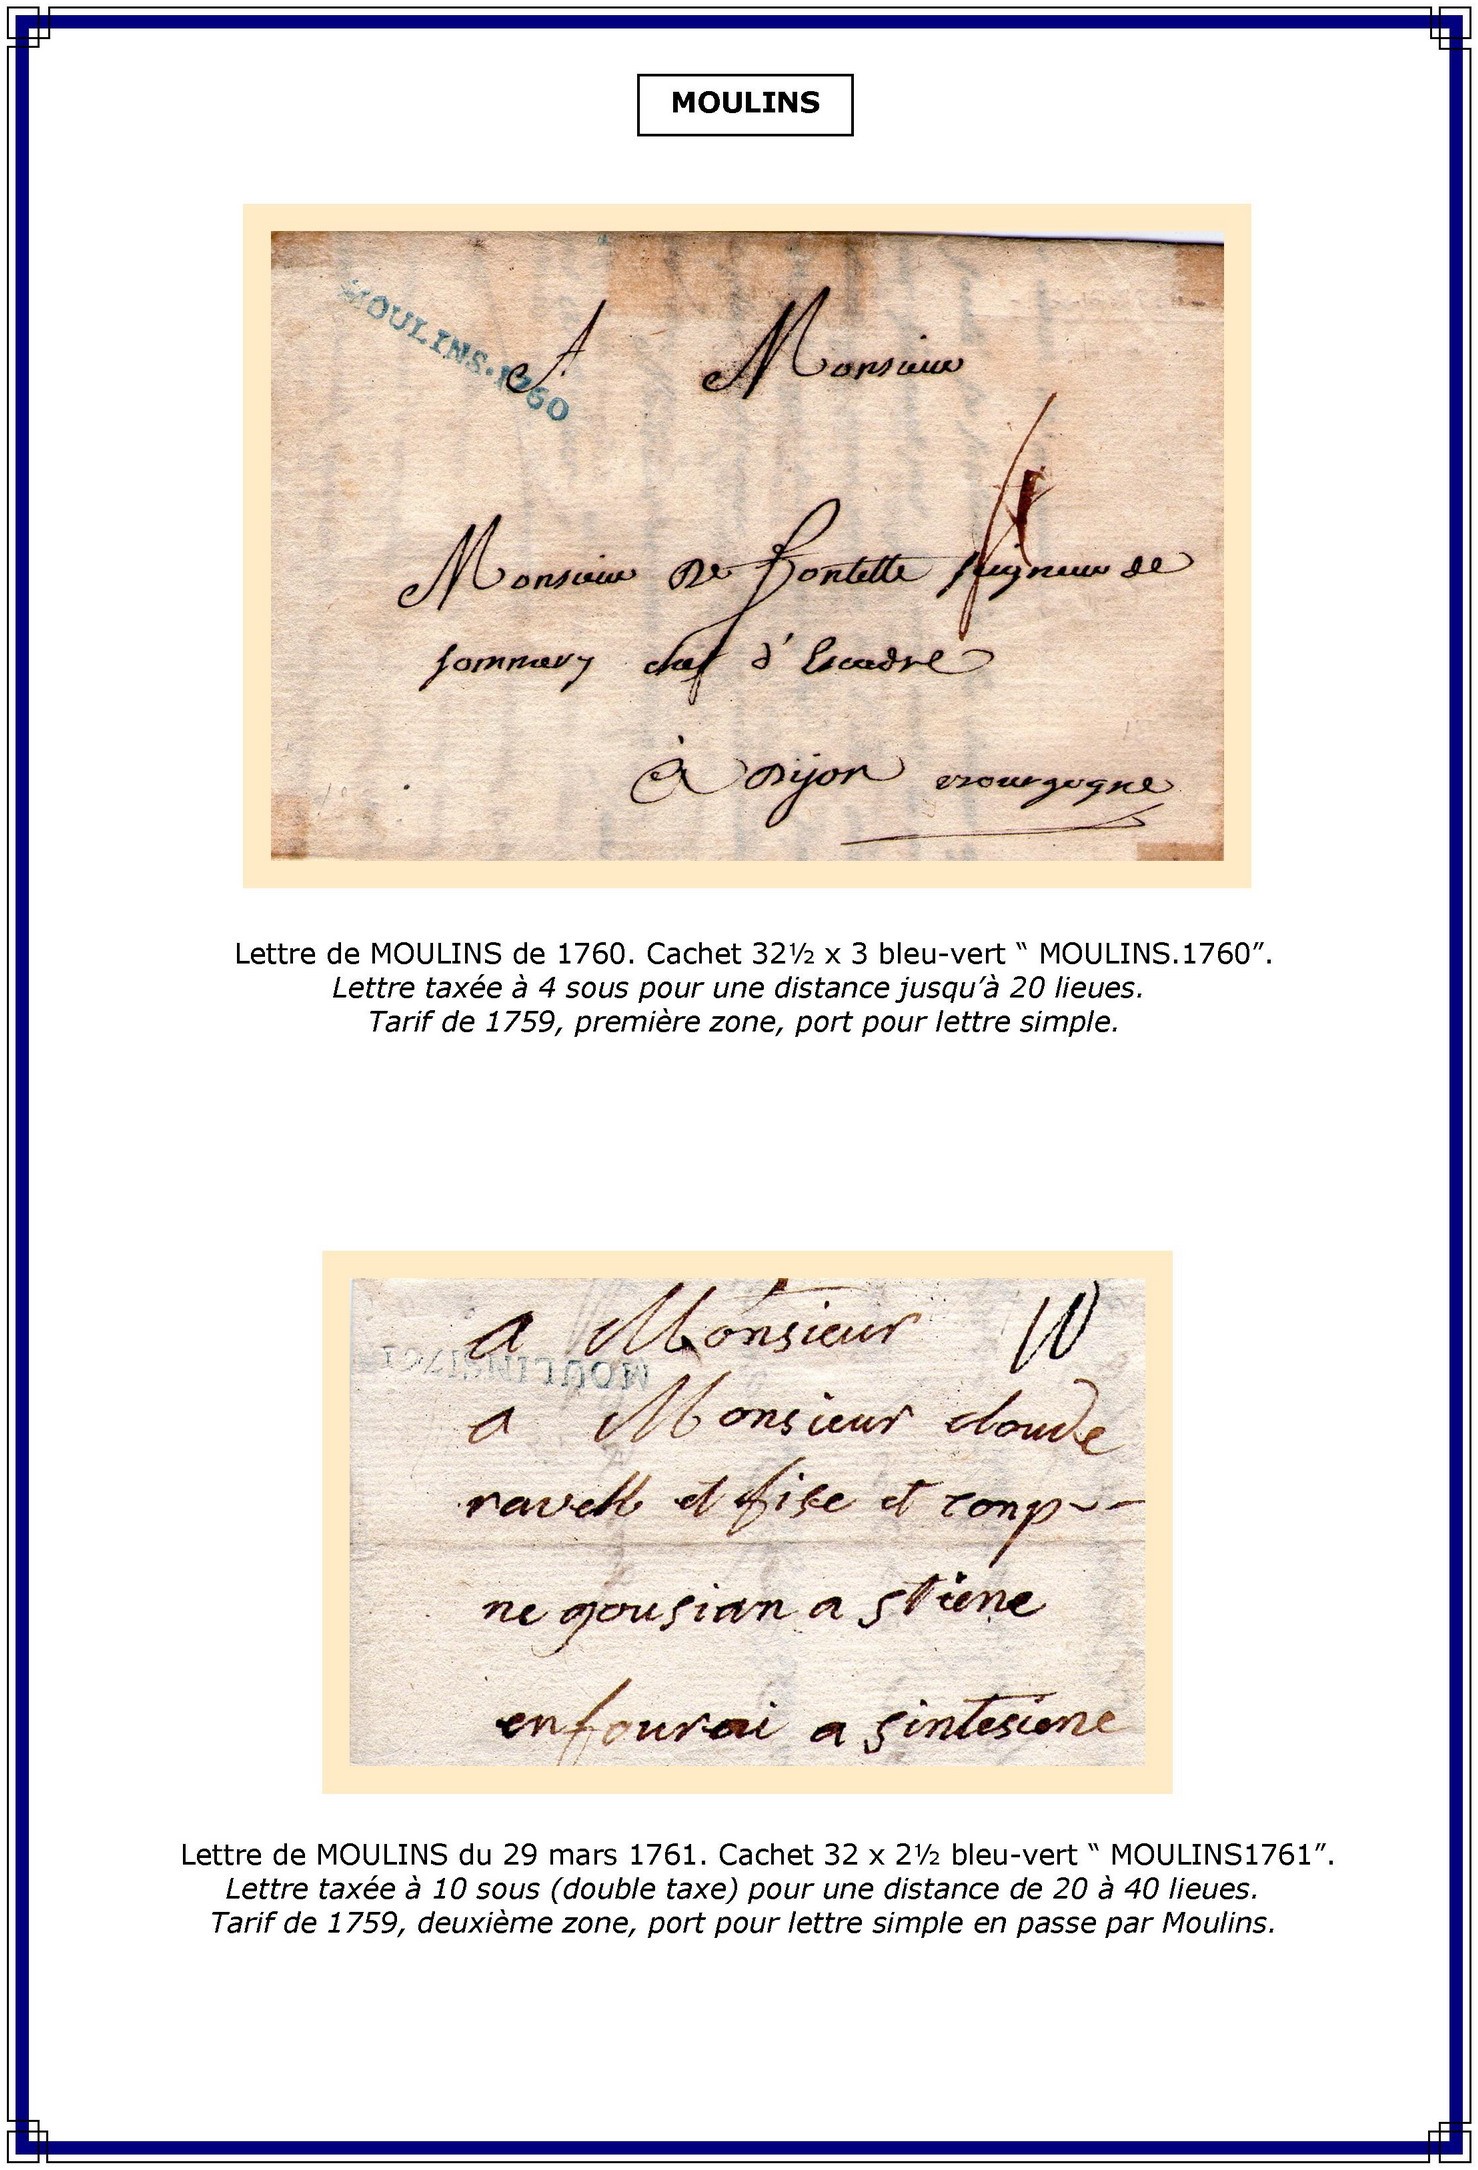 MOULINS
MOULINS.1760
A Monsieur
Monsieur De fontette seigneur de
sommery chef d'Escadre
à Dijon Bourgogne
Lettre de MOULINS de 1760. Cachet 32½ x 3 bleu-vert “ MOULINS.1760”.
Lettre taxée à 4 sous pour une distance jusqu’à 20 lieues.
Tarif de 1759, première zone, port pour lettre simple.
a Monsieur 10
MOULINS1761
a Monsieur cloude
ravell et fise et conp--
ne gousian a stiene
enfourai a sintesiene
Lettre de MOULINS du 29 mars 1761. Cachet 32 x 2½ bleu-vert “ MOULINS1761”.
Lettre taxée à 10 sous (double taxe) pour une distance de 20 à 40 lieues.
Tarif de 1759, deuxième zone, port pour lettre simple en passe par Moulins.